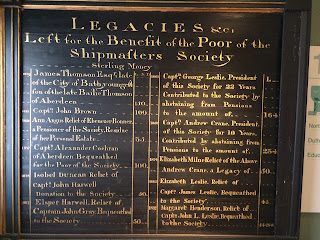 LEGACIES &c:
Left for the Benefit of the Poor of the
Shipmasters Society
Sterling Money
James Thomson Esqr. late
of the City of Bath young-
son of the late Bailie Thomson
of Aberdeen
Captn. John Brown 100
Ann Angus Relict of Ebenezer
a Pensioner of the Society, Residue
of her Personal Estate
Captn. Alexander Cochran
of Aberdeen Bequeathed
for the Poor of the Society 100
Isobel Duncan Relict of
Captn. John Harwell
Donation to the Society
Elspet Harwell, Relict of
Captain John Gray, Bequeathed
to the Society 50
Captn. George Leslie, President
of this Society for 22 Years
Contributed to the Society by
abstaining from Pensions
to the amount of
Captn. Andrew Crane, President
of this Society for 10 Years
Contributed by abstaining from
Pensions to the amount of
Elizabeth Milne Relict of the Above
Andrew Crane, a Legacy of
Elizabeth Leslie, Relict of
Captn. James Leslie, Bequeathed
to the Society
Margaret Henderson, Relict of
Captn. John L. Leslie, Bequeathed
to the Society